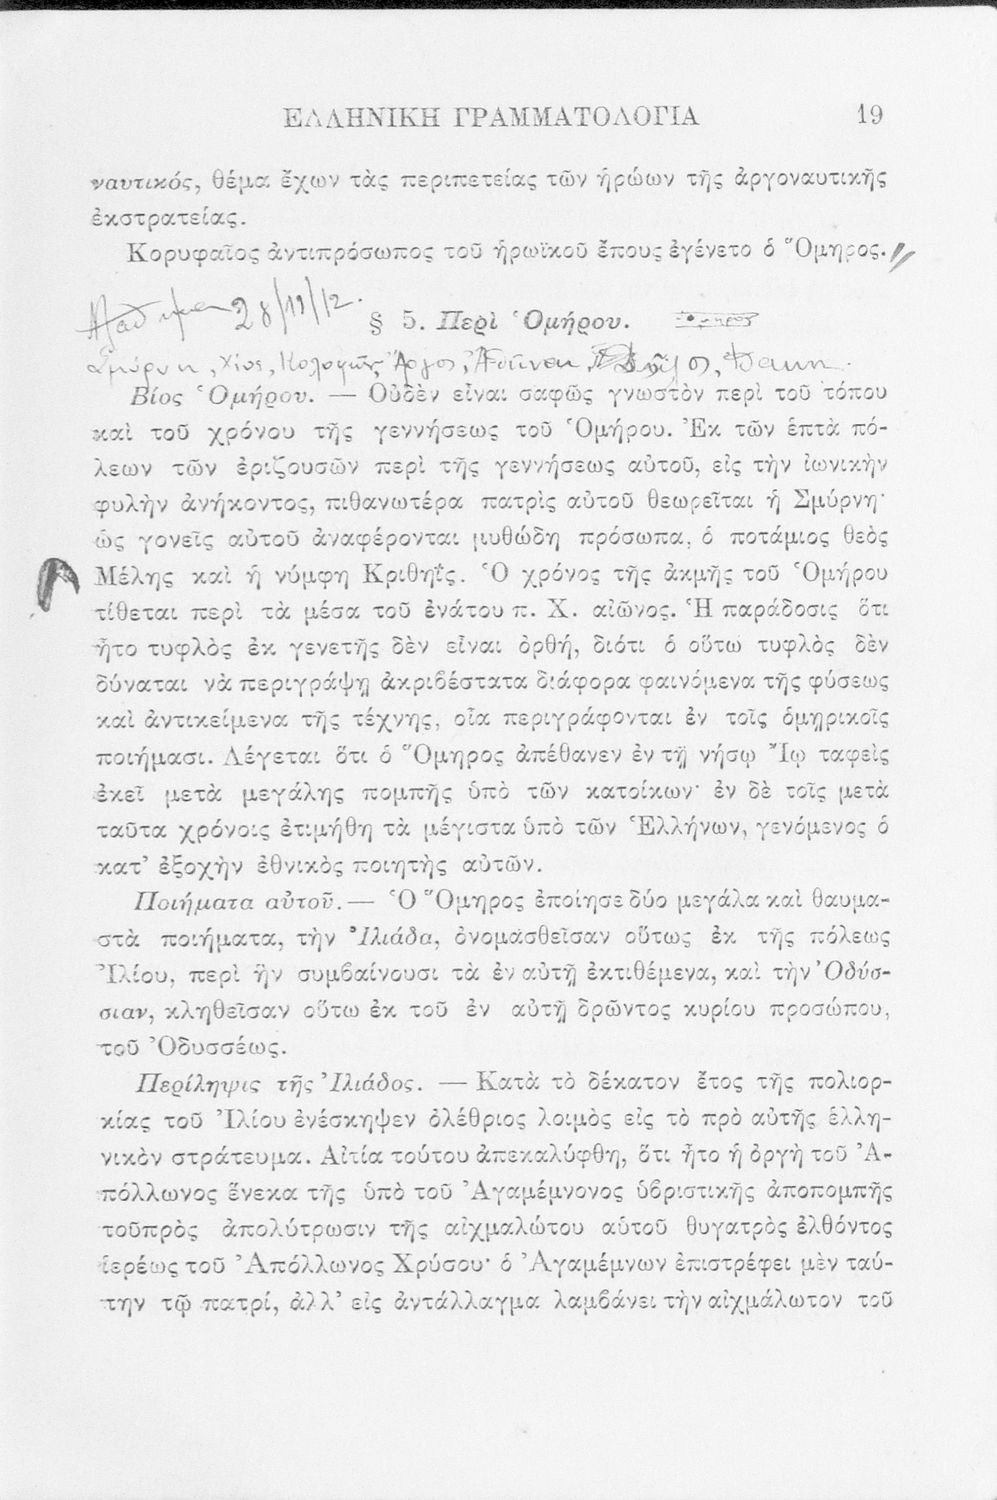 ΕΛΛΗΝΙΚΗ ΓΡΑΜΜΑΤΟΛΟΓΙΑ 19
ναυτικός, θέμα ἔχων τὰς περιπετείας τῶν ἡρώων τῆς ἀργοναυτικῆς
ἐκστρατείας.
Κορυφαῖος ἀντιπρόσωπος τοῦ ἡρωϊκοῦ ἔπους ἐγένετο ὁ Ὅμηρος.
28/11/12.
§ 5. Περὶ Ὁμήρου.
Σμύρνη, Χίος, Κολοφών, Ἄργος, Ἀθῆναι,
Βίος Ὁμήρου. — Οὐδὲν εἶναι σαφῶς γνωστὸν περὶ τοῦ τόπου
καὶ τοῦ χρόνου τῆς γεννήσεως τοῦ Ὁμήρου. Ἐκ τῶν ἑπτὰ πό-
λεων τῶν ἐριζουσῶν περὶ τῆς γεννήσεως αὐτοῦ, εἰς τὴν ἰωνικὴν
φυλὴν ἀνήκοντος, πιθανωτέρα πατρὶς αὐτοῦ θεωρεῖται ἡ Σμύρνη·
ὡς γονεῖς αὐτοῦ ἀναφέρονται μυθώδη πρόσωπα, ὁ ποτάμιος θεὸς
Μέλης καὶ ἡ νύμφη Κριθηΐς. Ὁ χρόνος τῆς ἀκμῆς τοῦ Ὁμήρου
τίθεται περὶ τὰ μέσα τοῦ ἐνάτου π. Χ. αἰῶνος. Ἡ παράδοσις ὅτι
ἦτο τυφλὸς ἐκ γενετῆς δὲν εἶναι ὀρθή, διότι ὁ οὕτω τυφλὸς δὲν
δύναται νὰ περιγράψῃ ἀκριβέστατα διάφορα φαινόμενα τῆς φύσεως
καὶ ἀντικείμενα τῆς τέχνης, οἷα περιγράφονται ἐν τοῖς ὁμηρικοῖς
ποιήμασι. Λέγεται ὅτι ὁ Ὅμηρος ἀπέθανεν ἐν τῇ νήσῳ Ἴῳ ταφεὶς
ἐκεῖ μετὰ μεγάλης πομπῆς ὑπὸ τῶν κατοίκων· ἐν δὲ τοῖς μετὰ
ταῦτα χρόνοις ἐτιμήθη τὰ μέγιστα ὑπὸ τῶν Ἑλλήνων, γενόμενος ὁ
κατ' ἐξοχὴν ἐθνικὸς ποιητὴς αὐτῶν.
Ποιήματα αὐτοῦ. — Ὁ Ὅμηρος ἐποίησε δύο μεγάλα καὶ θαυμα-
στὰ ποιήματα, τὴν Ἰλιάδα, ὀνομασθεῖσαν οὕτως ἐκ τῆς πόλεως
Ἰλίου, περὶ ἣν συμβαίνουσι τὰ ἐν αὐτῇ ἐκτιθέμενα, καὶ τὴν Ὀδύσ-
σιαν, κληθεῖσαν οὕτω ἐκ τοῦ ἐν αὐτῇ δρῶντος κυρίου προσώπου,
τοῦ Ὀδυσσέως.
Περίληψις τῆς Ἰλιάδος. — Κατὰ τὸ δέκατον ἔτος τῆς πολιορ-
κίας τοῦ Ἰλίου ἐνέσκηψεν ὀλέθριος λοιμὸς εἰς τὸ πρὸ αὐτῆς ἑλλη-
νικὸν στράτευμα. Αἰτία τούτου ἀπεκαλύφθη, ὅτι ἦτο ἡ ὀργὴ τοῦ Ἀ-
πόλλωνος ἕνεκα τῆς ὑπὸ τοῦ Ἀγαμέμνονος ὑβριστικῆς ἀποπομπῆς
τοῦ πρὸς ἀπολύτρωσιν τῆς αἰχμαλώτου αὑτοῦ θυγατρὸς ἐλθόντος
ἱερέως τοῦ Ἀπόλλωνος Χρύσου· ὁ Ἀγαμέμνων ἐπιστρέφει μὲν ταύ-
την τῷ πατρί, ἀλλ' εἰς ἀντάλλαγμα λαμβάνει τὴν αἰχμάλωτον τοῦ